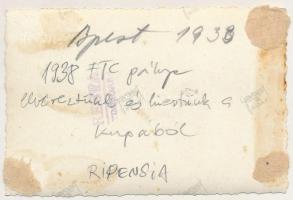 Bpest 1938
1938 FTC pálya
elvereztünk és kiestünk a
kupából
RIPENSIA